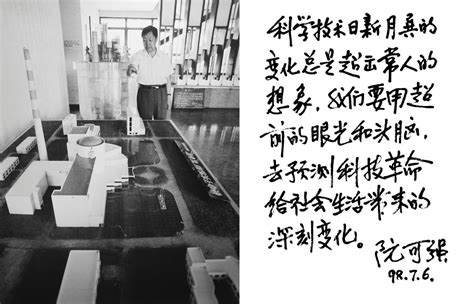 科学技术日新月异的
变化总是超出常人的
想象，我们要用超
前的眼光和头脑，
去预测科技革命
给社会生活带来的
深刻变化。
阮可强
98.7.6.